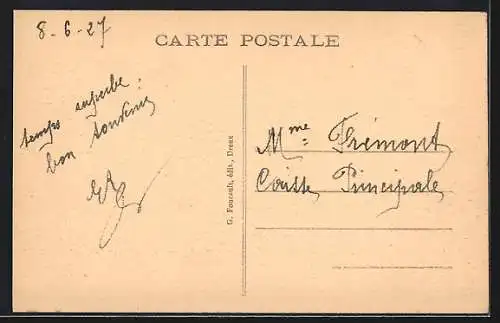 8-6-27
CARTE POSTALE
temps superbe :
bon souvenir
G. Foucault, édit., Dreux
Mme Frémont
Caisse Principale